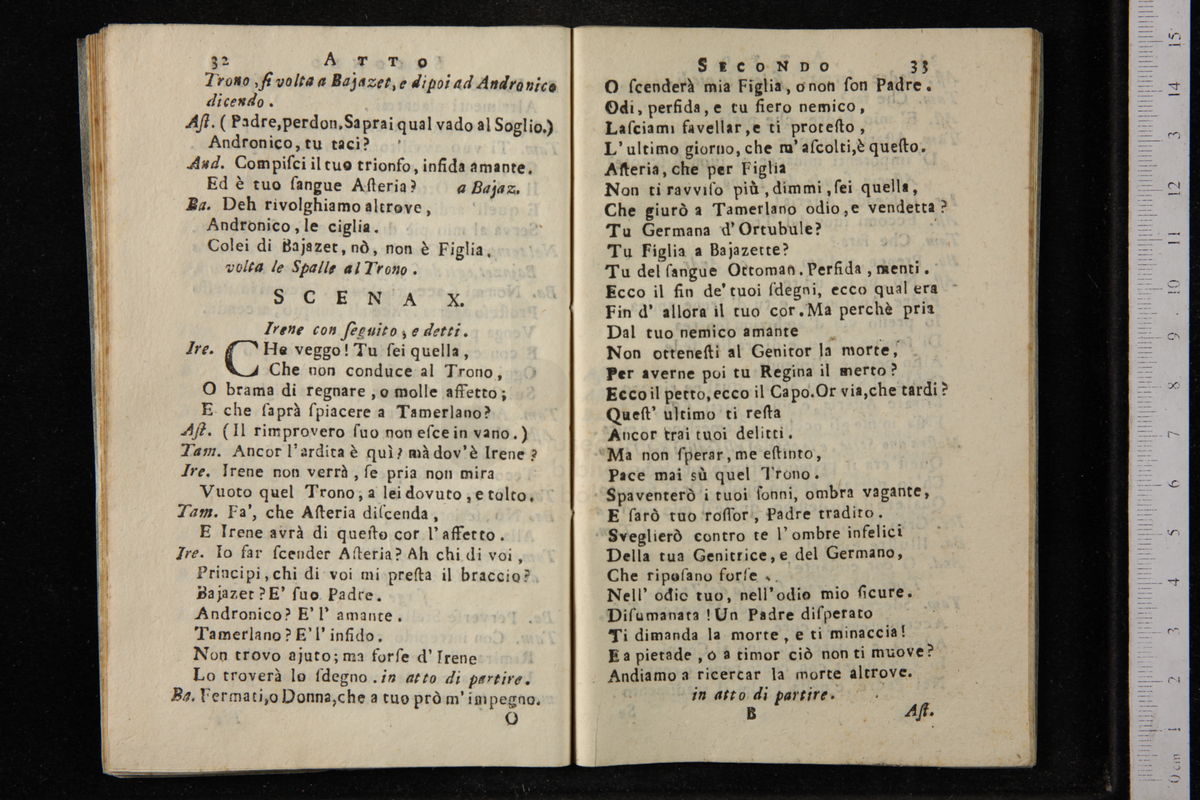 32 ATTO
Trono, ſi volta a Bajazet, e dipoi ad Andronico
dicendo.
Aſt. (Padre, perdon. Saprai qual vado al Soglio.)
Andronico, tu taci?
And. Compiſci il tuo trionfo, infida amante.
Ed è tuo ſangue Aſteria? a Bajaz.
Ba. Deh rivolghiamo altrove,
Andronico, le ciglia.
Colei di Bajazet, nò, non è Figlia.
volta le Spalle al Trono.
SCENA X.
Irene con ſeguito, e detti.
Ire. CHe veggo! Tu ſei quella,
Che non conduce al Trono,
O brama di regnare, o molle affetto;
E che ſaprà ſpiacere a Tamerlano?
Aſt. (Il rimprovero ſuo non eſce in vano.)
Tam. Ancor l'ardita è quì? mà dov'è Irene?
Ire. Irene non verrà, ſe pria non mira
Vuoto quel Trono, a lei dovuto, e tolto.
Tam. Fa', che Aſteria diſcenda,
E Irene avrà di queſto cor l'affetto.
Ire. Io far ſcender Aſteria? Ah chi di voi,
Principi, chi di voi mi preſta il braccio?
Bajazet? E' ſuo Padre.
Andronico? E' l' amante.
Tamerlano? E' l' infido.
Non trovo ajuto; ma forſe d' Irene
Lo troverà lo ſdegno. in atto di partire.
Ba. Fermati, o Donna, che a tuo prò m' impegno.
O
SECONDO 33
O ſcenderà mia Figlia, o non ſon Padre.
Odi, perfida, e tu fiero nemico,
Laſciami favellar, e ti proteſto,
L' ultimo giorno, che m' aſcolti, è queſto.
Aſteria, che per Figlia
Non ti ravviſo più, dimmi, ſei quella,
Che giurò a Tamerlano odio, e vendetta?
Tu Germana d' Ortubule?
Tu Figlia a Bajazette?
Tu del ſangue Ottoman. Perfida, menti.
Ecco il fin de' tuoi ſdegni, ecco qual era
Fin d' allora il tuo cor. Ma perchè pria
Dal tuo nemico amante
Non otteneſti al Genitor la morte,
Per averne poi tu Regina il merto?
Ecco il petto, ecco il Capo. Or via, che tardi?
Queſt' ultimo ti reſta
Ancor trai tuoi delitti.
Ma non ſperar, me eſtinto,
Pace mai sù quel Trono.
Spaventerò i tuoi ſonni, ombra vagante,
E ſarò tuo roſſor, Padre tradito.
Sveglierò contro te l' ombre infelici
Della tua Genitrice, e del Germano,
Che ripoſano forſe
Nell' odio tuo, nell' odio mio ſicure.
Diſumanata! Un Padre diſperato
Ti dimanda la morte, e ti minaccia!
E a pietade, o a timor ciò non ti muove?
Andiamo a ricercar la morte altrove.
in atto di partire.
B Aſt.
0 cm 1 2 3 4 5 6 7 8 9 10 11 12 13 14 15